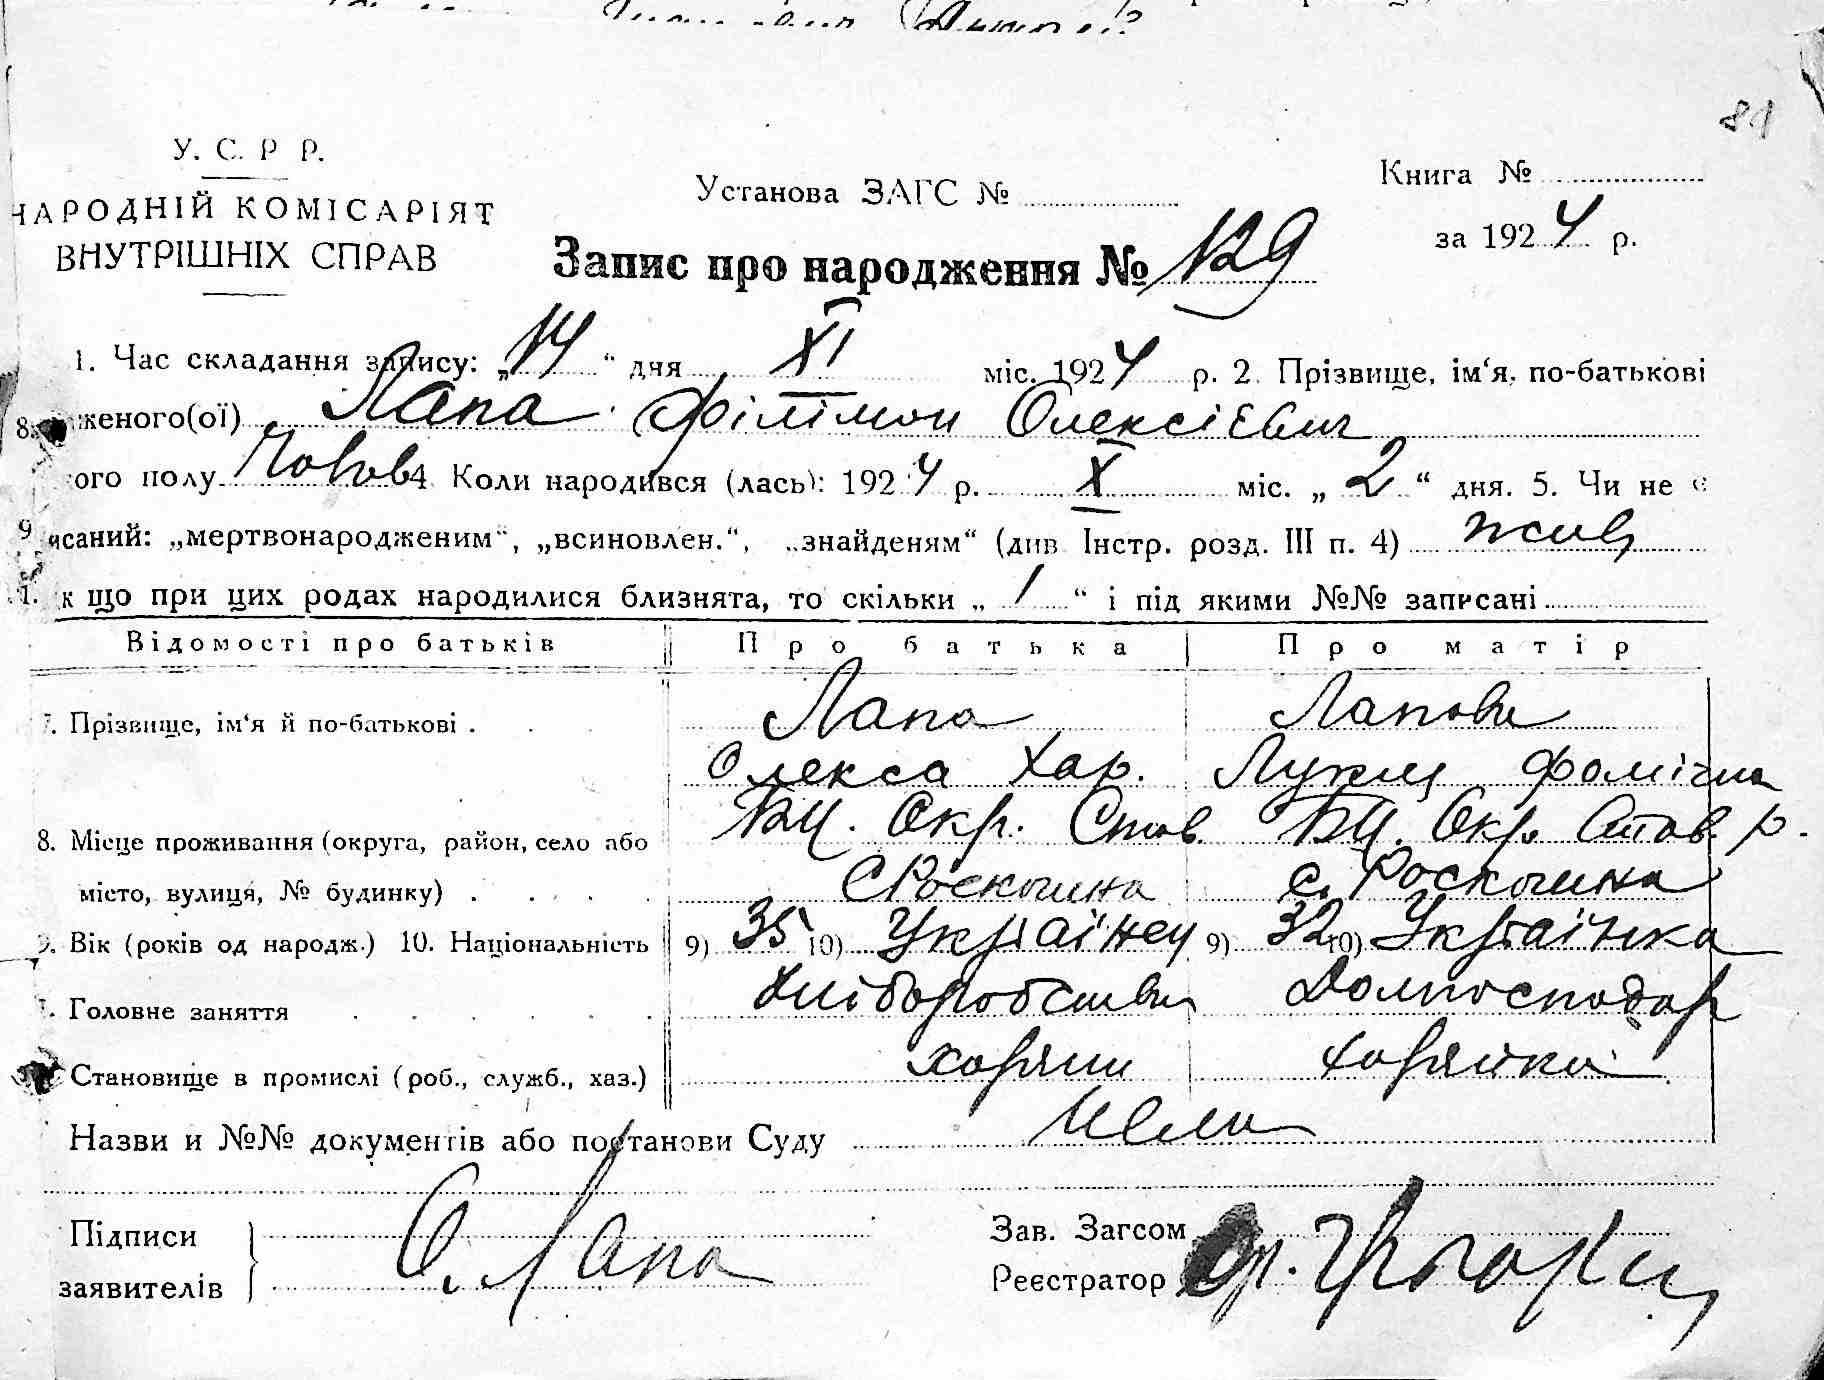 81
У. С. Р Р.
НАРОДНІЙ КОМІСАРІЯТ
ВНУТРІШНІХ СПРАВ
Установа ЗАГС №
Книга №
за 1924 р.
Запис про народження № 129
1. Час складання запису: „14“ дня XI міс. 1924 р. 2. Прізвище, ім‘я, по-батькові
женого(ої) Лапа Філімон Олексієвич
ого полу Чолов 4 Коли народився (лась): 1924 р. X міс. „2“ дня. 5. Чи не є
исаний: „мертвонародженим“, „всиновлен.“, „знайденям“ (див Інстр. розд. III п. 4) жив
к що при цих родах народилися близнята, то скільки „1“ і під якими №№ записані
Відомості про батьків Про батька Про матір
7. Прізвище, ім‘я й по-батькові . Лапа Лапова
Олекса Хар. Лукія Фомічна
8. Місце проживання (округа, район, село або БЦ. Окр. Став. БЦ. Окр. Став. р.
місто, вулиця, № будинку) с Роскошна с. Роскошна
9. Вік (років од народж.) 10. Національність 9) 35 10) Українец 9) 32 10) Українка
Головне заняття Хліборобство Домгосподар
Становище в промислі (роб., служб., хаз.) хазяин хазяйка
Назви и №№ документів або постанови Суду
Підписи
заявителів О. Лапа
Зав. Загсом
Реєстратор